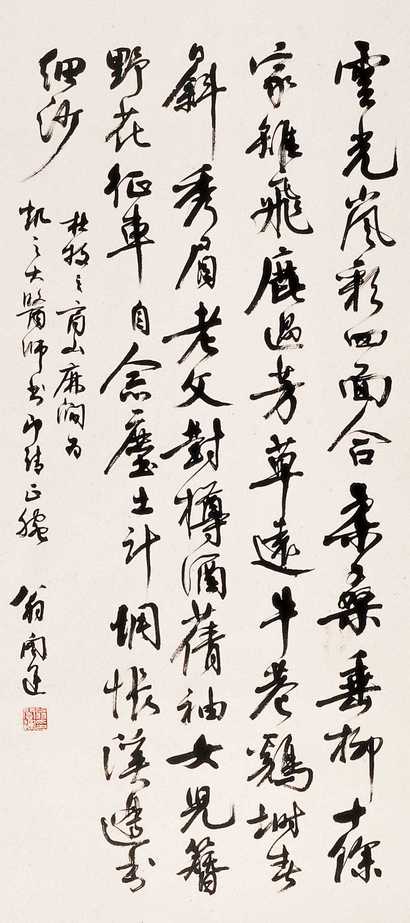 雲光嵐彩四面合柔桑垂柳十餘
家雉飛鹿過芳草遠牛巷鷄塒春
日斜秀眉老父對樽酒蒨袖女兒簪
野花征車自念塵土計惆悵溪邊書
細沙
杜牧之商山麻澗為
凱之大醫師書即請正腕
翁闓運